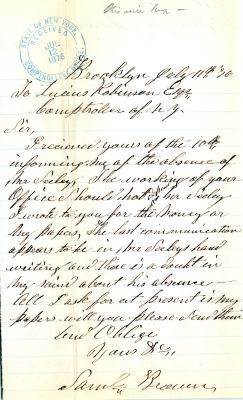 STATE OF NEW YORK
RECEIVED
JUL
1876
COMPTROLLER'S
Brooklyn July 11th 76
To Lucius Robinson Esqr
Comptroller of N.Y.
Sir,
I received yours of the 10th
informing me of the absence
of Mr Seeley. The working of your
Office should not Mr Seeley
I wrote to you for the money or
My papers, the last communication
appears to be in Mr Seelys hand
writing and there is a doubt in
my mind about his absence
All I ask for at present is my
papers will you please send them
and Oblige
Yours &c,
Saml Brown